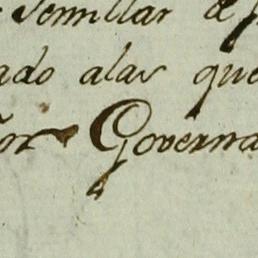 Semillar de
ado alas que
ñor Governa